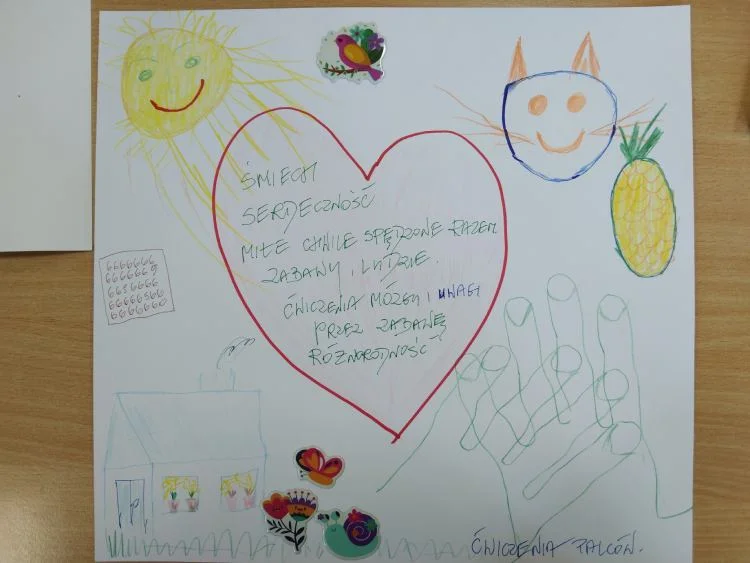 ŚMIECH
SERDECZNOŚĆ
MIŁE CHWILE SPĘDZONE RAZEM
ZABAWY I LUDZIE.
ĆWICZENIA MÓZGU I UWAGI
PRZEZ ZABAWĘ
RÓŻNORODNOŚĆ
ĆWICZENIA PALCÓW.